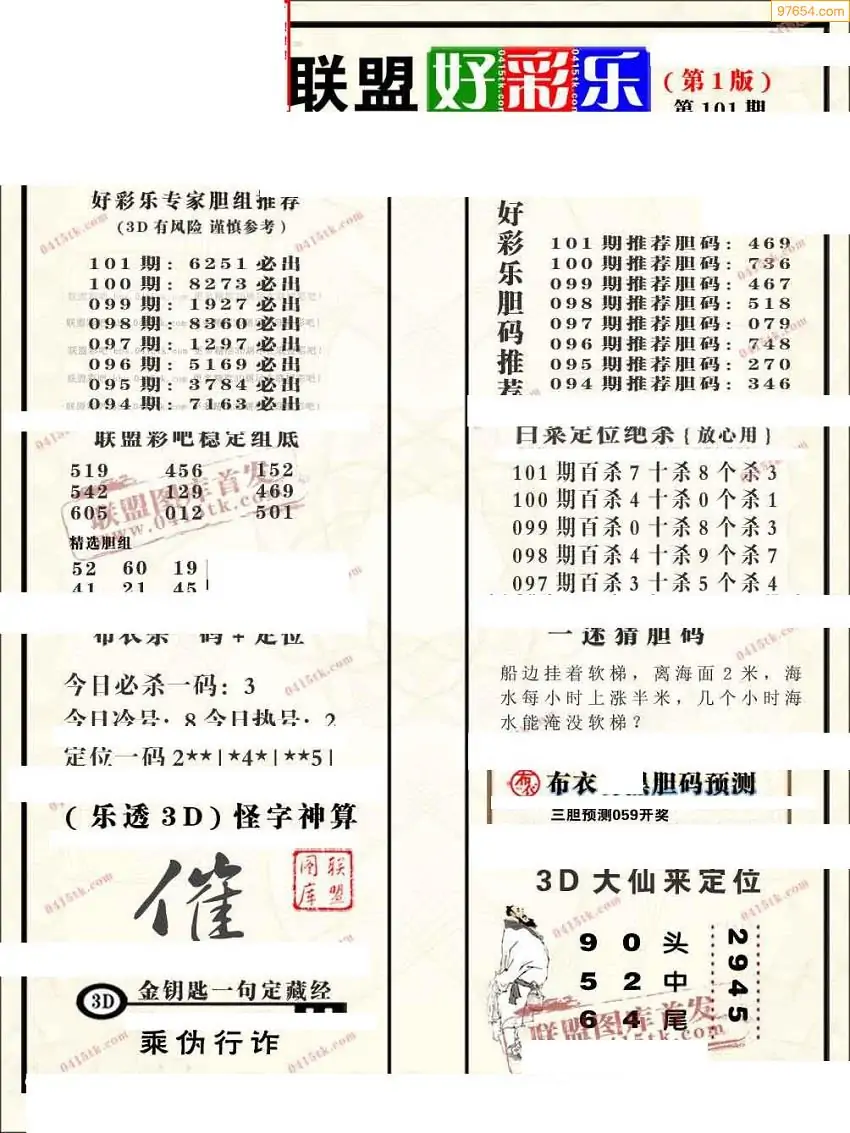 97654.com
联盟好彩乐
(第1版)
第101期
好彩乐专家胆组推荐
(3D有风险 谨慎参考)
101期: 6251必出
100期: 8273必出
099期: 1927必出
098期: 8360必出
097期: 1297必出
096期: 5169必出
095期: 3784必出
094期: 7163必出
联盟彩吧稳定组底
519 456 152
542 129 469
605 012 501
精选胆组
52 60 19
41 21 45
布衣杀一码+定位
今日必杀一码: 3
今日冷号: 8 今日热号: 2
定位一码 2**|*4*|**5|
(乐透3D)怪字神算
催
联盟图库
3D 金钥匙一句定藏经
乘伪行诈
好彩乐胆码推荐
101期推荐胆码: 469
100期推荐胆码: 736
099期推荐胆码: 467
098期推荐胆码: 518
097期推荐胆码: 079
096期推荐胆码: 748
095期推荐胆码: 270
094期推荐胆码: 346
白菜定位绝杀{放心用}
101期百杀7十杀8个杀3
100期百杀4十杀0个杀1
099期百杀0十杀8个杀3
098期百杀4十杀9个杀7
097期百杀3十杀5个杀4
一迷猜胆码
船边挂着软梯，离海面2米，海
水每小时上涨半米，几个小时海
水能淹没软梯？
布衣 胆码预测
三胆预测059开奖
3D大仙来定位
9 0 头
5 2 中
6 4 尾
2945
联盟图库首发
www.0415tk.com
0415tk.com